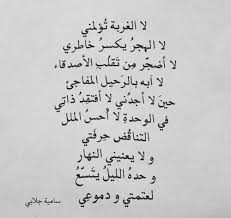 لا الغربة تُؤلمني
لا الهجرُ يكسرُ خاطري
لا أضجّر مِن تَقلبِ الأصدقاء
لا آبه بالرَحيل المفاجئ
حينَ لا أجدُني لا أفتقدُ ذاتي
في الوحدةِ لا أُحسنُ الملل
التناقُض حِرفَتي
و لا يعنيني النهار
و حدهُ الليلُ يتسّعُ
لعتمتي و دموعي
سامية جلابي